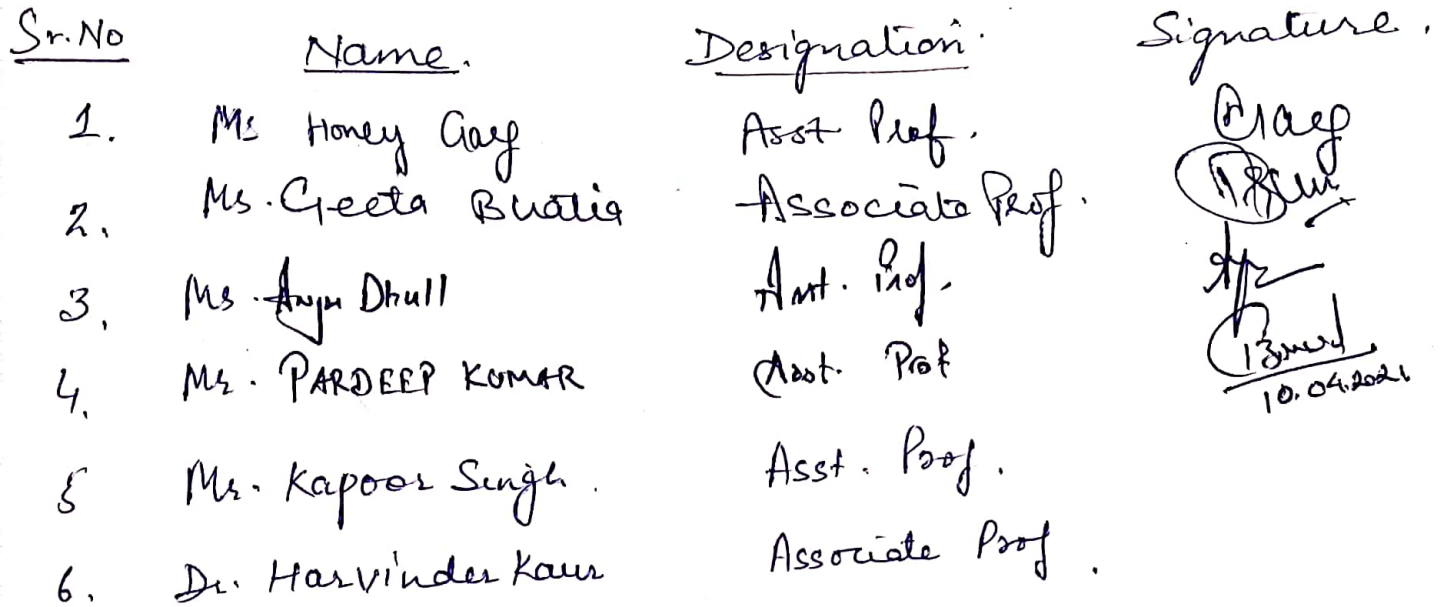 Sr. No Name. Designation. Signature.
1. Ms Honey Garg Asst Prof. Garg
2. Ms. Geeta Bhatia Associate Prof.
3. Ms. Anju Dhull Asst. Prof.
4. Mr. PARDEEP KUMAR Asst. Prof 10.04.2021
5 Mr. Kapoor Singh. Asst. Prof.
6. Dr. Harvinder Kaur Associate Prof.